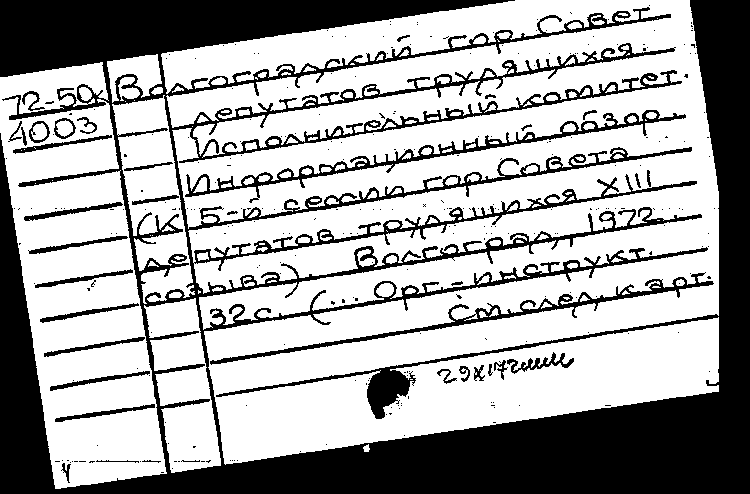 72-50к Волгоградский гор. Совет
4003 депутатов трудящихся.
Исполнительный комитет.
Информационный обзор.
(К 5-й сессии гор. Совета
депутатов трудящихся XIII
созыва). Волгоград, 1972.
32с. (... Орг.-инструкт.
См. след. карт.
29х172мм